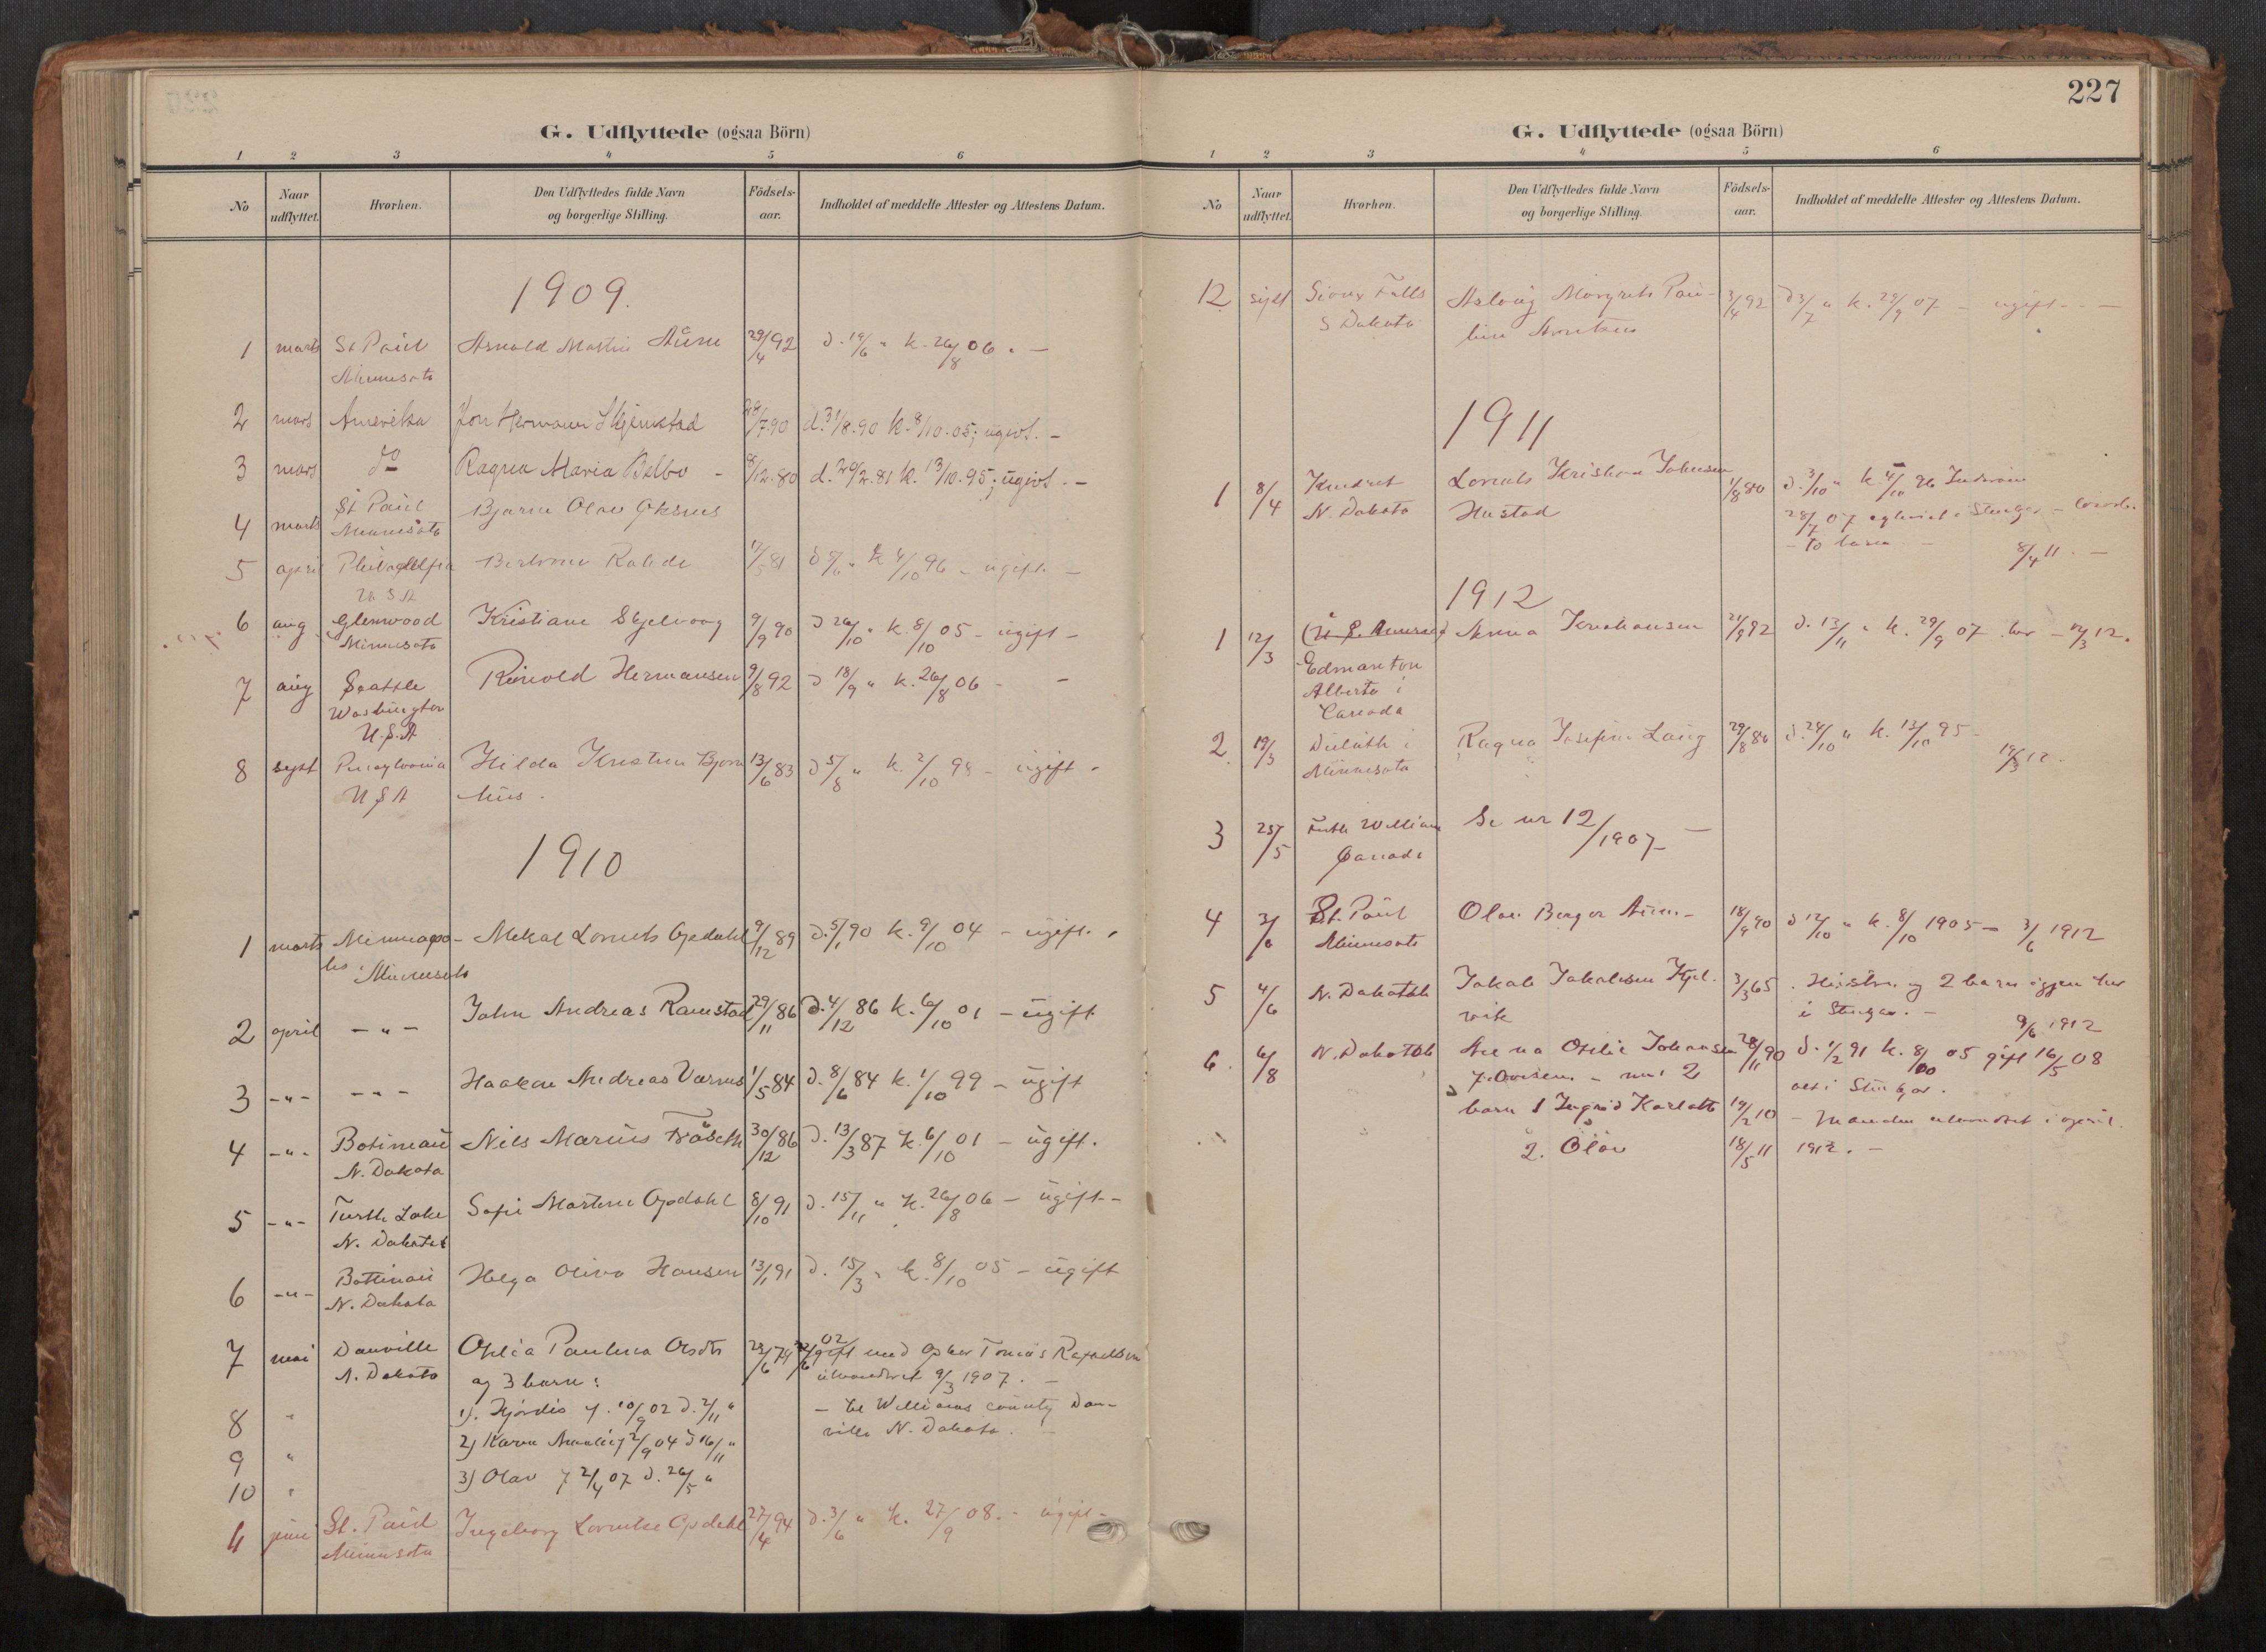 G. Udflyttede (ogsaa Börn)
1 2 3 4 5 6
No
Naar udflyttet.
Hvorhen.
Den Udflyttedes fulde Navn
og borgerlige Stilling.
Födsels-
aar.
Indholdet af meddelte Attester og Attestens Datum.
1909.
1 marts St Paul Arnold Martin Aune 29/4 92 d. 19/6 " k. 26/8 06. –
Minnesota
2 mars Amerika Jon Hermann Skjemstad 28/7.90 d. 31/8.90 k. 8/10.05; ugivt. –
3 mars do Ragna Maria Belbo – 8/12.80 d. 20/2.81 k. 13/10.95; ugivt. –
4 marts St Paul Bjarne Olav
Minnesota
5 april Philadelfia 17/5 81 k 4/10 96 – ugift –
U S A
6 aug Glenwood Kristiane Skjelvaag 9/9 90 d 26/10 " k. 8/10 05 – ugift –
Minnesota
7 aug Seattle Reinold Hermansen 9/8 92 d 18/9 " k. 26/8 06 – –
Washington
U.S.A
8 sept Pensylvania Hilda Kristine Bjørn 13/6 83 d 5/8 " k. 2/10 98 – ugift.
U S A hus.
1910
1 marts Minneapo- Mekal Lornts Opdahl 9/12 89 d. 5/1 90 k. 9/10 04 – ugift.
lis Minnesota
2 april – " – John Andreas Ramstad 29/11 86 d. 4/12 86 k. 6/10 01 – ugift
3 – " – – " – Haakon Andreas Værnes 1/5 84 d. 8/6 84 k. 1/10 99 – ugift
4 – " – Botineau Nils Marius Fröseth 30/12 86 d. 13/3 87 k. 6/10 01 – ugift.
N. Dakota
5 – " – Turtle Lake Sofie Martine Opdahl 8/10 91 d. 15/11 " k. 26/8 06 – ugift –
N. Dakota
6 – " – Bottineau Helga Oliva Hansen 13/1 91 d. 15/3 " k. 8/10 05 – ugift
N. Dakota
7 mai Danville Otelia Paulina Olsdtr 28/6 79 22/6 02 gift med Tomas Rafaelsen
N. Dakota og 3 barn: utvandret 9/3 1907. –
8 " 1). Hjördis f. 10/9 02 d. 2/11 " – til Williams county Dan-
ville N. Dakota. –
9 " 2) Karen 2/9 04 d 16/11 "
10 " 3) Olav f 2/4 07 d. 26/5 "
11 juni St. Paul Ingeborg Lorntse Opdahl 27/4 94 d. 3/6 " k. 27/9 08. – ugift –
Minnesota
227
G. Udflyttede (ogsaa Börn)
1 2 3 4 5 6
No
Naar udflyttet.
Hvorhen.
Den Udflyttedes fulde Navn
og borgerlige Stilling.
Födsels-
aar.
Indholdet af meddelte Attester og Attestens Datum.
12 sept Sioux Falls Aslaug Margrete Pau- 3/4 92 d 3/7 " k. 29/9 07 – ugift – –
S Dakota line Arntsen
1911
1 8/4 Lornts Kristian Johnsen 1/8 80 d. 3/10 " k. 4/10 96
N. Dakota Hustad 28/7 07
– to barn – 8/4 11. –
1912
1 12/3 (U. S. Amerika) Anna Jonhansen 21/9 92 d. 13/11 " k. 29/9 07 – 12/3 12.
Edmanton
Alberta i
Canada
2. 19/3 Duluth i Ragna Josefine Lang 29/8 80 d. 24/10 " k. 13/10 95 –
Minnesota 19/3 12.
3 25/5 William Se nr 12/1907 –
Canada
4 3/6 St. Paul Olav Berger Aune – 18/9 90 d 12/10 " k. 8/10 1905 – 3/6 1912
Minnesota
5 4/6 N. Dakotah Jakob Jakobsen Hjel- 3/3 65. Hustru og 2 barn igjen her
vik i Steinkjer. – 9/6 1912
6. 6/8 N. Dakotah Anna Otelie Johansen 28/11 90 d. 1/2 91 k. 8/10 05 gift 16/5 08
2
barn 1 Ingrid Karlotte 19/2 10 – Manden utvandret i april
2. Olav 18/5 11 1912. –